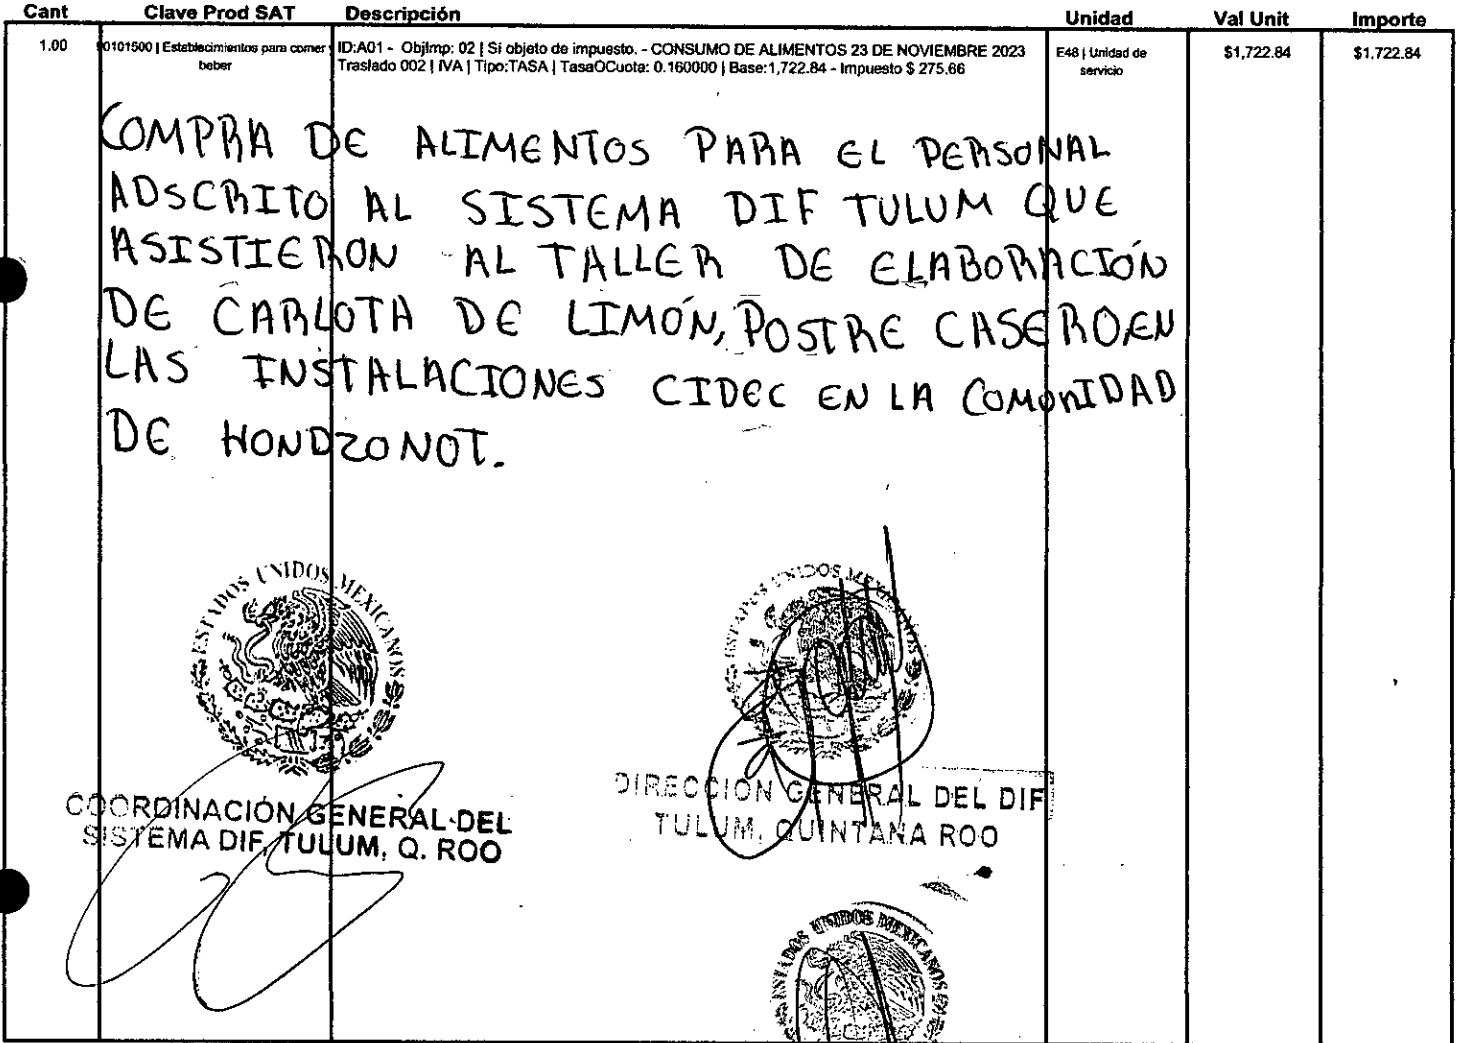 Cant Clave Prod SAT Descripción Unidad Val Unit Importe
1.00 0101500 | Establecimientos para comer ID:A01 - ObjImp: 02 | Si objeto de impuesto. - CONSUMO DE ALIMENTOS 23 DE NOVIEMBRE 2023 E48 | Unidad de $1,722.84 $1,722.84
beber Traslado 002 | IVA | Tipo:TASA | TasaOCuota: 0.160000 | Base:1,722.84 - Impuesto $ 275.66 servicio
COMPRA DE ALIMENTOS PARA EL PERSONAL
ADSCRITO AL SISTEMA DIF TULUM QUE
ASISTIERON AL TALLER DE ELABORACIÓN
DE CARLOTA DE LIMÓN, POSTRE CASERO EN
LAS INSTALACIONES CIDEC EN LA COMUNIDAD
DE HONDZONOT.
ESTADOS UNIDOS MEXICANOS
COORDINACIÓN GENERAL DEL
SISTEMA DIF, TULUM, Q. ROO
ESTADOS UNIDOS MEXICANOS
DIRECCIÓN GENERAL DEL DIF
TULUM, QUINTANA ROO
ESTADOS UNIDOS MEXICANOS